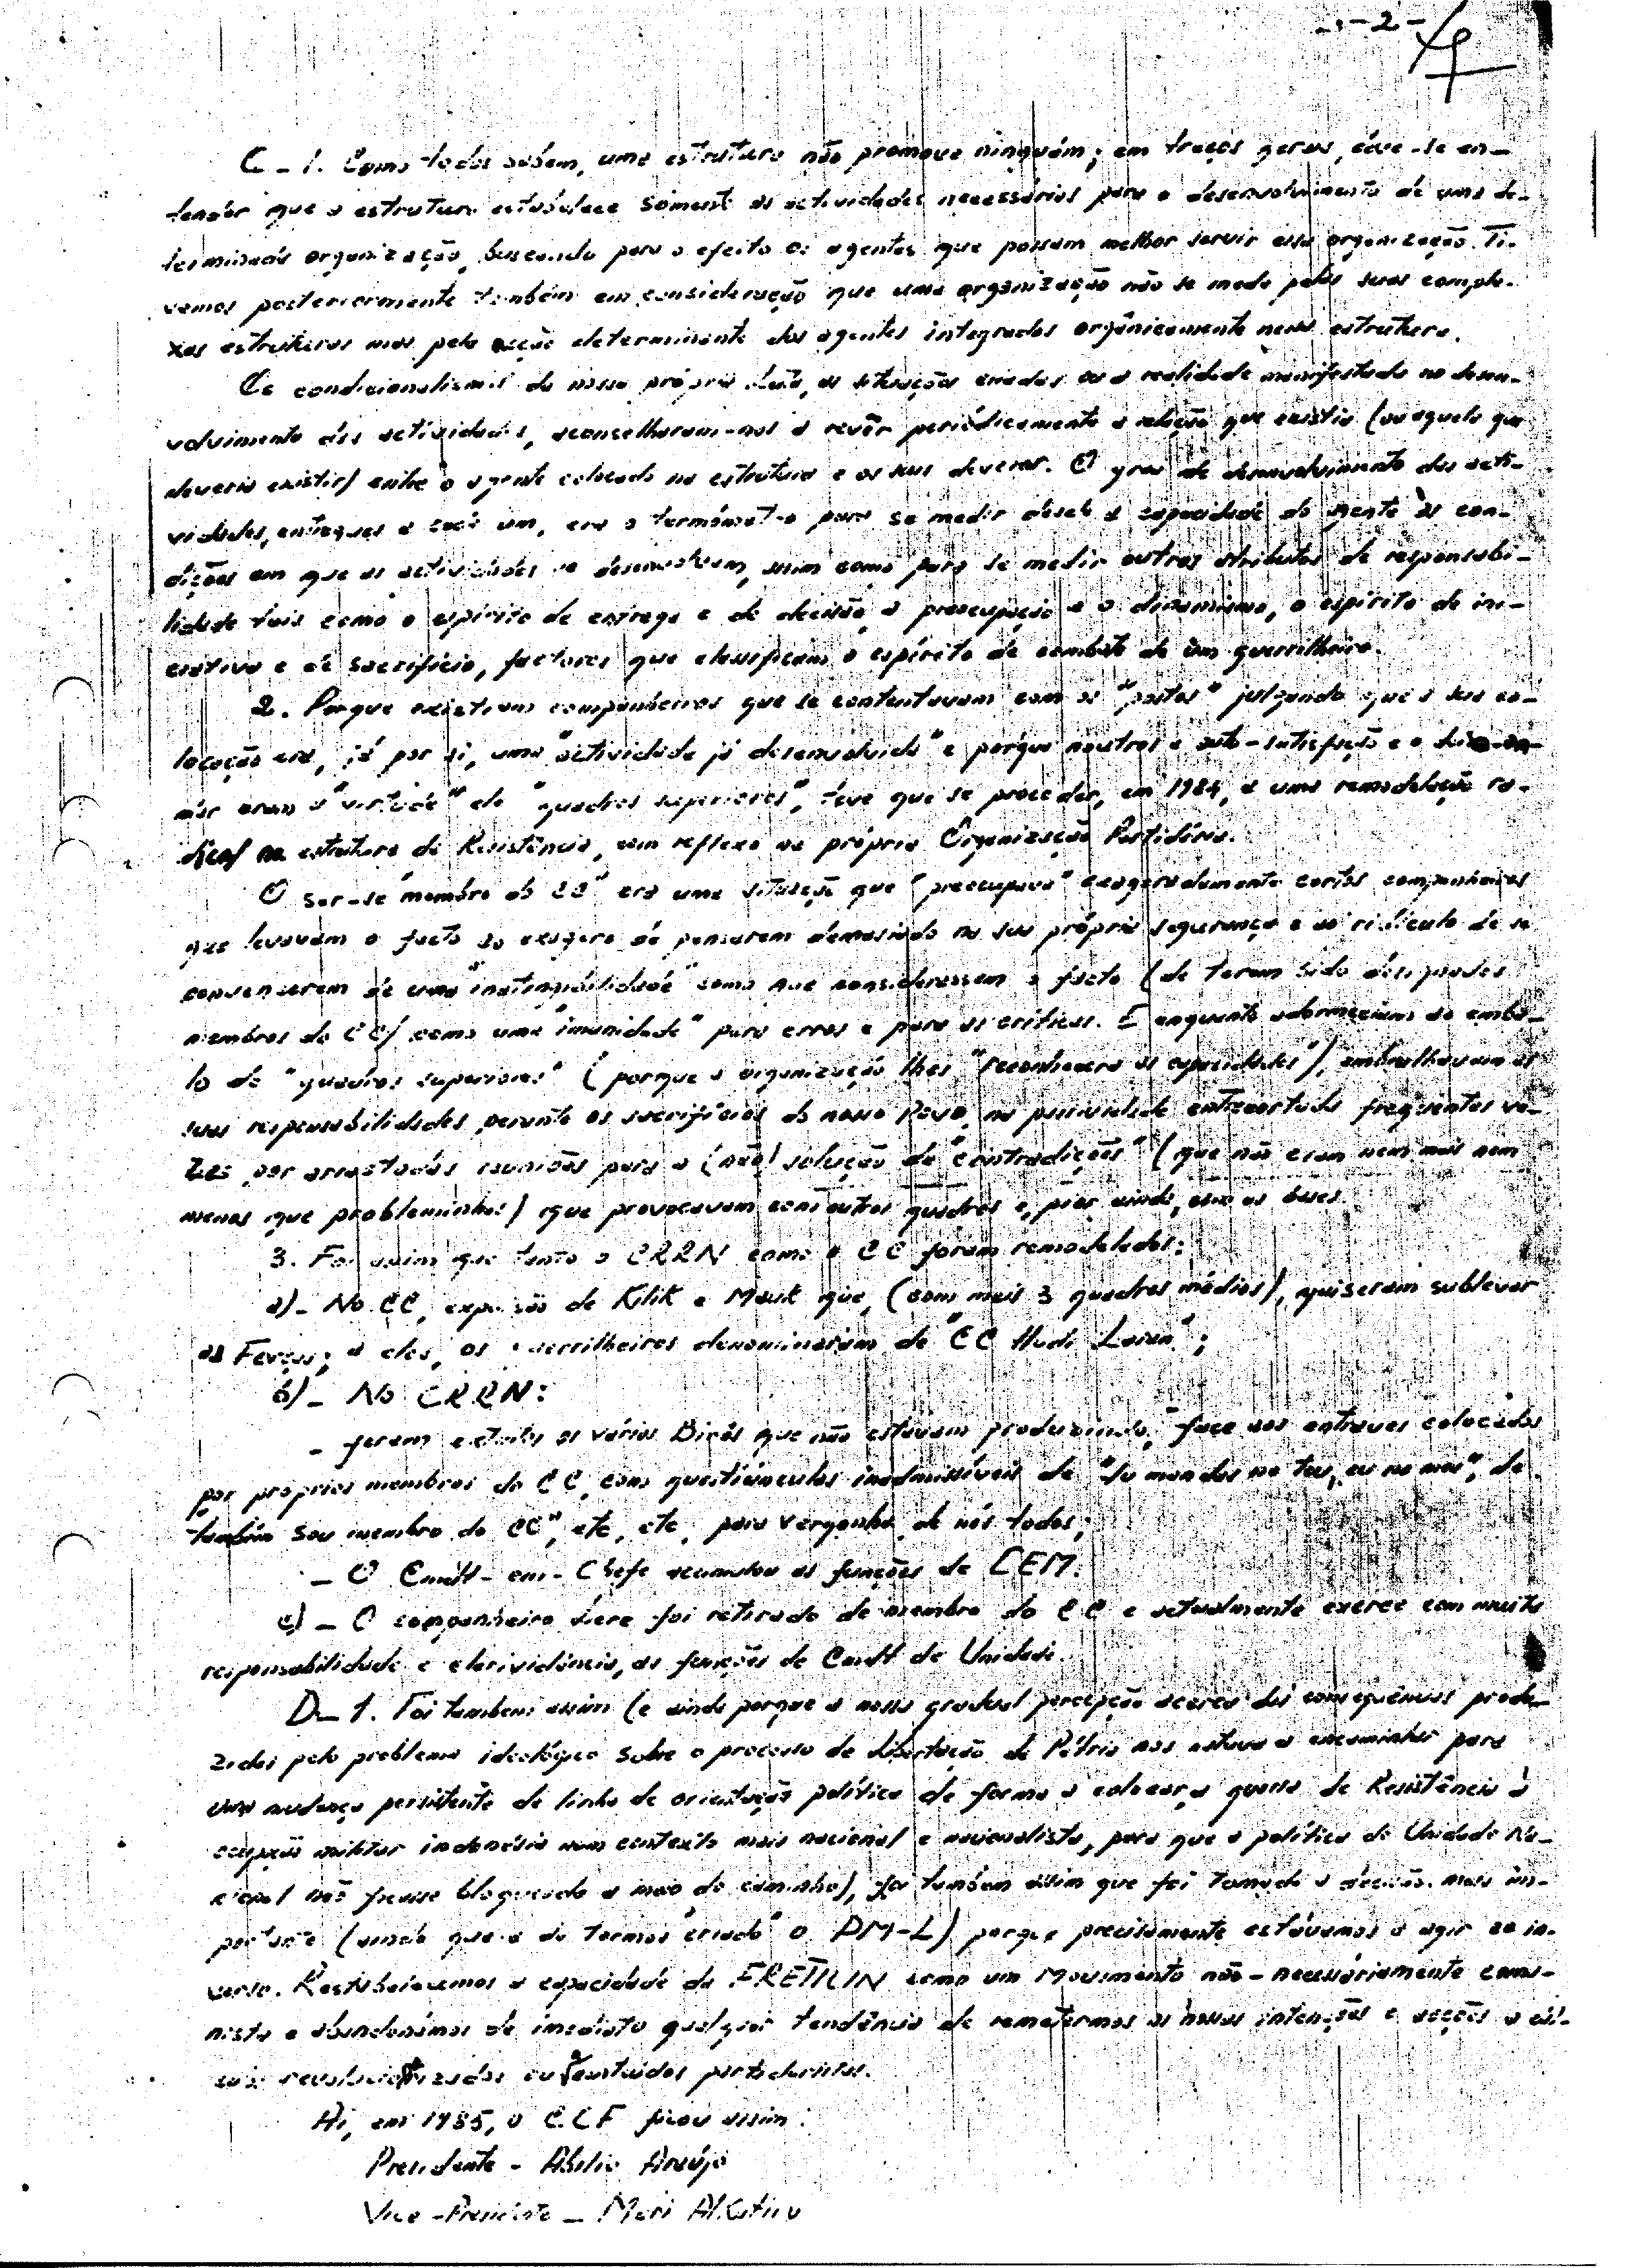 - 2 -
C - 1. Como todos sabem, uma estrutura não promove ninguém; em traços gerais, deve-se en-
tender que a estrutura estabelece somente as actividades necessárias para o desenvolvimento de uma de-
terminada organização, buscando para o efeito os agentes que possam melhor servir essa organização. Ti-
vemos posteriormente também em consideração que uma organização não se mede pelas suas comple-
xas estruturas mas pela acção determinante dos agentes integrados orgânicamente nessa estrutura.
Os condicionalismos da nossa própria luta, as situações criadas ou a realidade manifestada no desen-
volvimento das actividades, aconselharam-nos a revêr periódicamente a relação que existia (ou aquela que
deveria existir) entre o agente colocado na estrutura e os seus deveres. O grau de desenvolvimento das acti-
vidades, entregues a cada um, era o termómetro para se medir desde a capacidade do agente às con-
dições em que as actividades se desenvolviam, assim como para se medir outros atributos de responsabi-
lidade tais como o espírito de entrega e de decisão, a preocupação e o dinamismo, o espírito de ini-
ciativa e de sacrifício, factores que classificam o espírito de combate de um guerrilheiro.
2. Porque existiam companheiros que se contentavam com os "postos" julgando que a sua co-
locação era, já por si, uma "actividade já desenvolvida" e porque noutros a auto-satisfação e o
eram a "virtude" de "quadros superiores", teve que se proceder, em 1984, a uma remodelação ra-
dical na estrutura da Resistência, com reflexo na própria Organização Partidária.
O ser-se "membro do CC" era uma situação que "preocupava" exageradamente certos companheiros
que levavam o facto ao exagero de pensarem demasiado na sua própria segurança e ao ridículo de se
convencerem de uma "inatingibilidade" como que considerassem o facto (de terem sido designados
membros do CC) como uma "imunidade" para erros e para as críticas. E enquanto adormeciam ao emba-
lo de "quadros superiores" (porque a organização lhes "reconhecera as capacidades"), embrulhavam as
suas responsabilidades perante os sacrifícios do nosso Povo, na passividade entrecortada frequentes ve-
zes por arrastadas reuniões para a (não) solução de "contradições" (que não eram nem mais nem
menos que probleminhas) que provocavam com outros quadros e, pior ainda, com as bases.
3. Foi assim que tanto o CRRN como o CC foram remodelados:
a) - No CC, expulsão de Kilik e Mauk que, (com mais 3 quadros médios), quiseram sublevar
as Forças; a eles, os guerrilheiros denominaram de "CC Hudi Laran";
b) - No CRRN:
- foram extintos os vários Dirôs que não estavam produzindo, face aos entraves colocados
por próprios membros do CC, com questiúnculas inadmissíveis de "tu mandas no teu, eu no meu", de
também sou membro do CC", etc, etc, para vergonha de nós todos;
- O Cmdt-em-Chefe acumulou as funções de CEM.
c) - O companheiro Lere foi retirado de membro do CC e actualmente exerce com muita
responsabilidade e clarividência, as funções de Cmdt de Unidade.
D - 1. Foi também assim (e ainda porque a nossa gradual percepção acerca das consequências produ-
zidas pelo problema ideológico sobre o processo de Libertação da Pátria nos estava a encaminhar para
uma mudança persistente de linha de orientação política de forma a colocar a guerra de Resistência à
ocupação militar indonésia num contexto mais nacional e nacionalista, para que a política de Unidade Na-
cional não ficasse bloqueada a meio do caminho), foi também assim que foi tomada a decisão mais im-
portante (ainda que a de termos "criado" o PM-L) porque precisamente estávamos a agir ao in-
verso. Restabelecemos a capacidade da FRETILIN como um Movimento não-necessáriamente comu-
nista e abandonámos de imediato qualquer tendência de remetermos as nossas intenções e acções a
ou conteúdos partidaristas.
Aí, em 1985, o CCF ficou assim:
Presidente - Abílio Araújo
Vice-Presidente - Mari Alkatiri